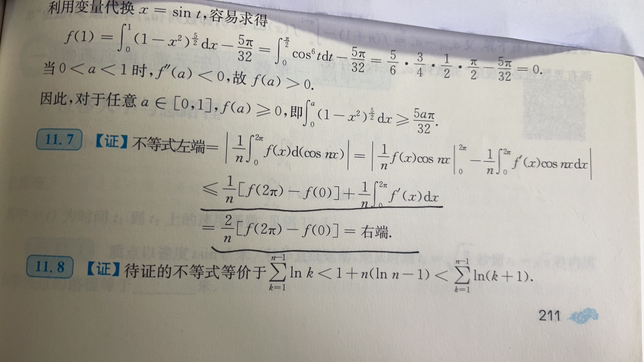 利用变量代换 x = sin t,容易求得
f(1) = ∫₀¹(1−x²)^{5/2}dx − 5π/32 = ∫₀^{π/2}cos⁶tdt − 5π/32 = 5/6 · 3/4 · 1/2 · π/2 − 5π/32 = 0.
当 0 < a < 1 时, f″(a) < 0,故 f(a) > 0.
因此,对于任意 a ∈ [0,1], f(a) ≥ 0,即∫₀^a(1−x²)^{5/2}dx ≥ 5aπ/32.
11.7 【证】不等式左端 = |1/n ∫₀^{2π} f(x)d(cos nx)| = |1/n f(x)cos nx|₀^{2π} − 1/n ∫₀^{2π} f′(x)cos nxdx|
≤ 1/n [f(2π) − f(0)] + 1/n ∫₀^{2π} f′(x)dx
= 2/n [f(2π) − f(0)] = 右端.
11.8 【证】待证的不等式等价于∑_{k=1}^{n−1} ln k < 1 + n(ln n − 1) < ∑_{k=1}^{n−1} ln(k+1).
211